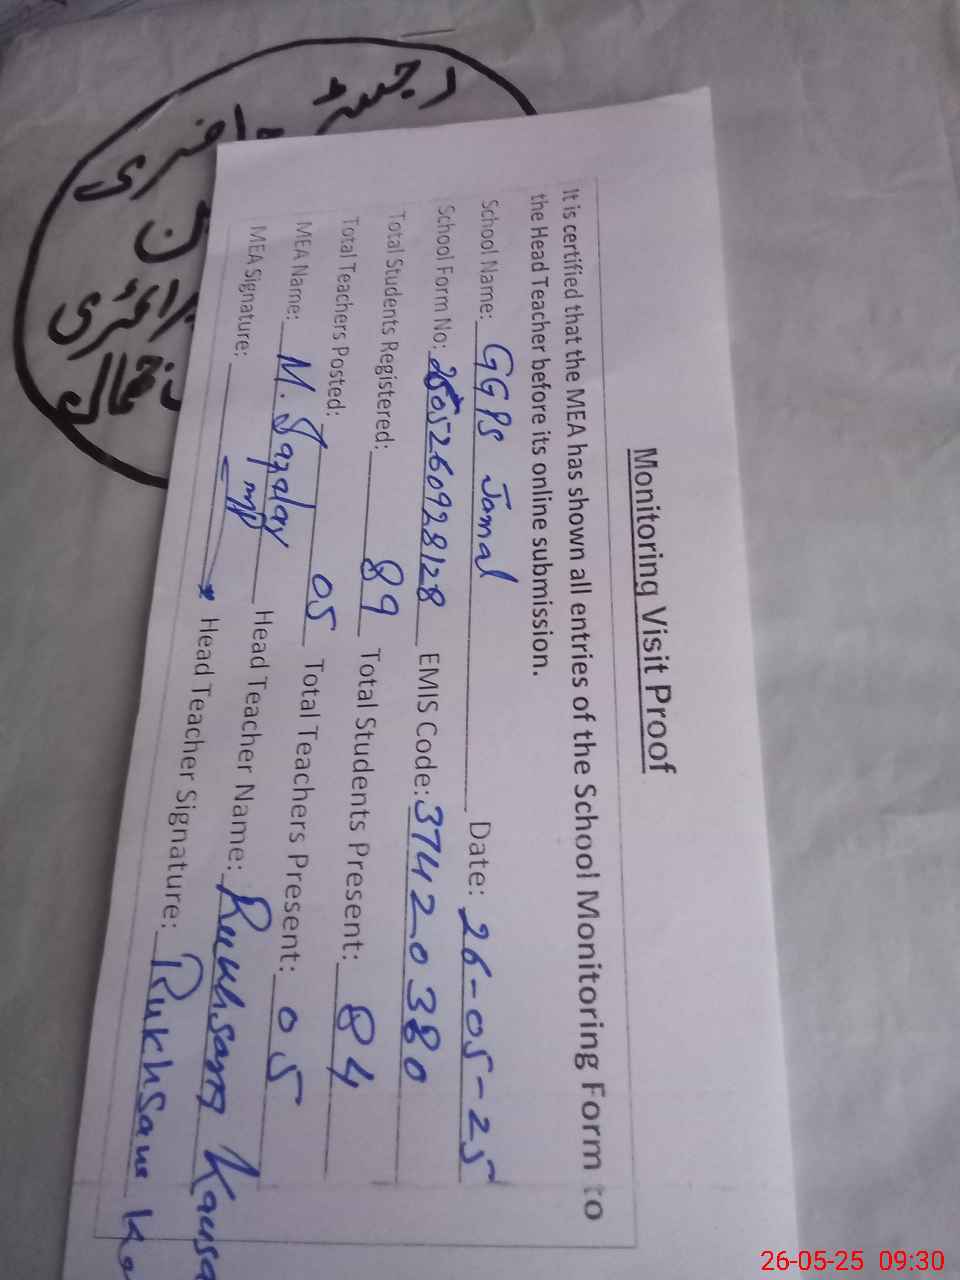 Monitoring Visit Proof
It is certified that the MEA has shown all entries of the School Monitoring Form to
the Head Teacher before its online submission.
School Name: GGPS Jamal Date: 26-05-25
School Form No: 2505260928128 EMIS Code: 37420380
Total Students Registered: 89 Total Students Present: 84
Total Teachers Posted: 05 Total Teachers Present: 05
MEA Name: M. Head Teacher Name: Rukhsana Kausa
MEA Signature: Head Teacher Signature: Rukhsana Ka
رجسٹر
حاضری
26-05-25 09:30